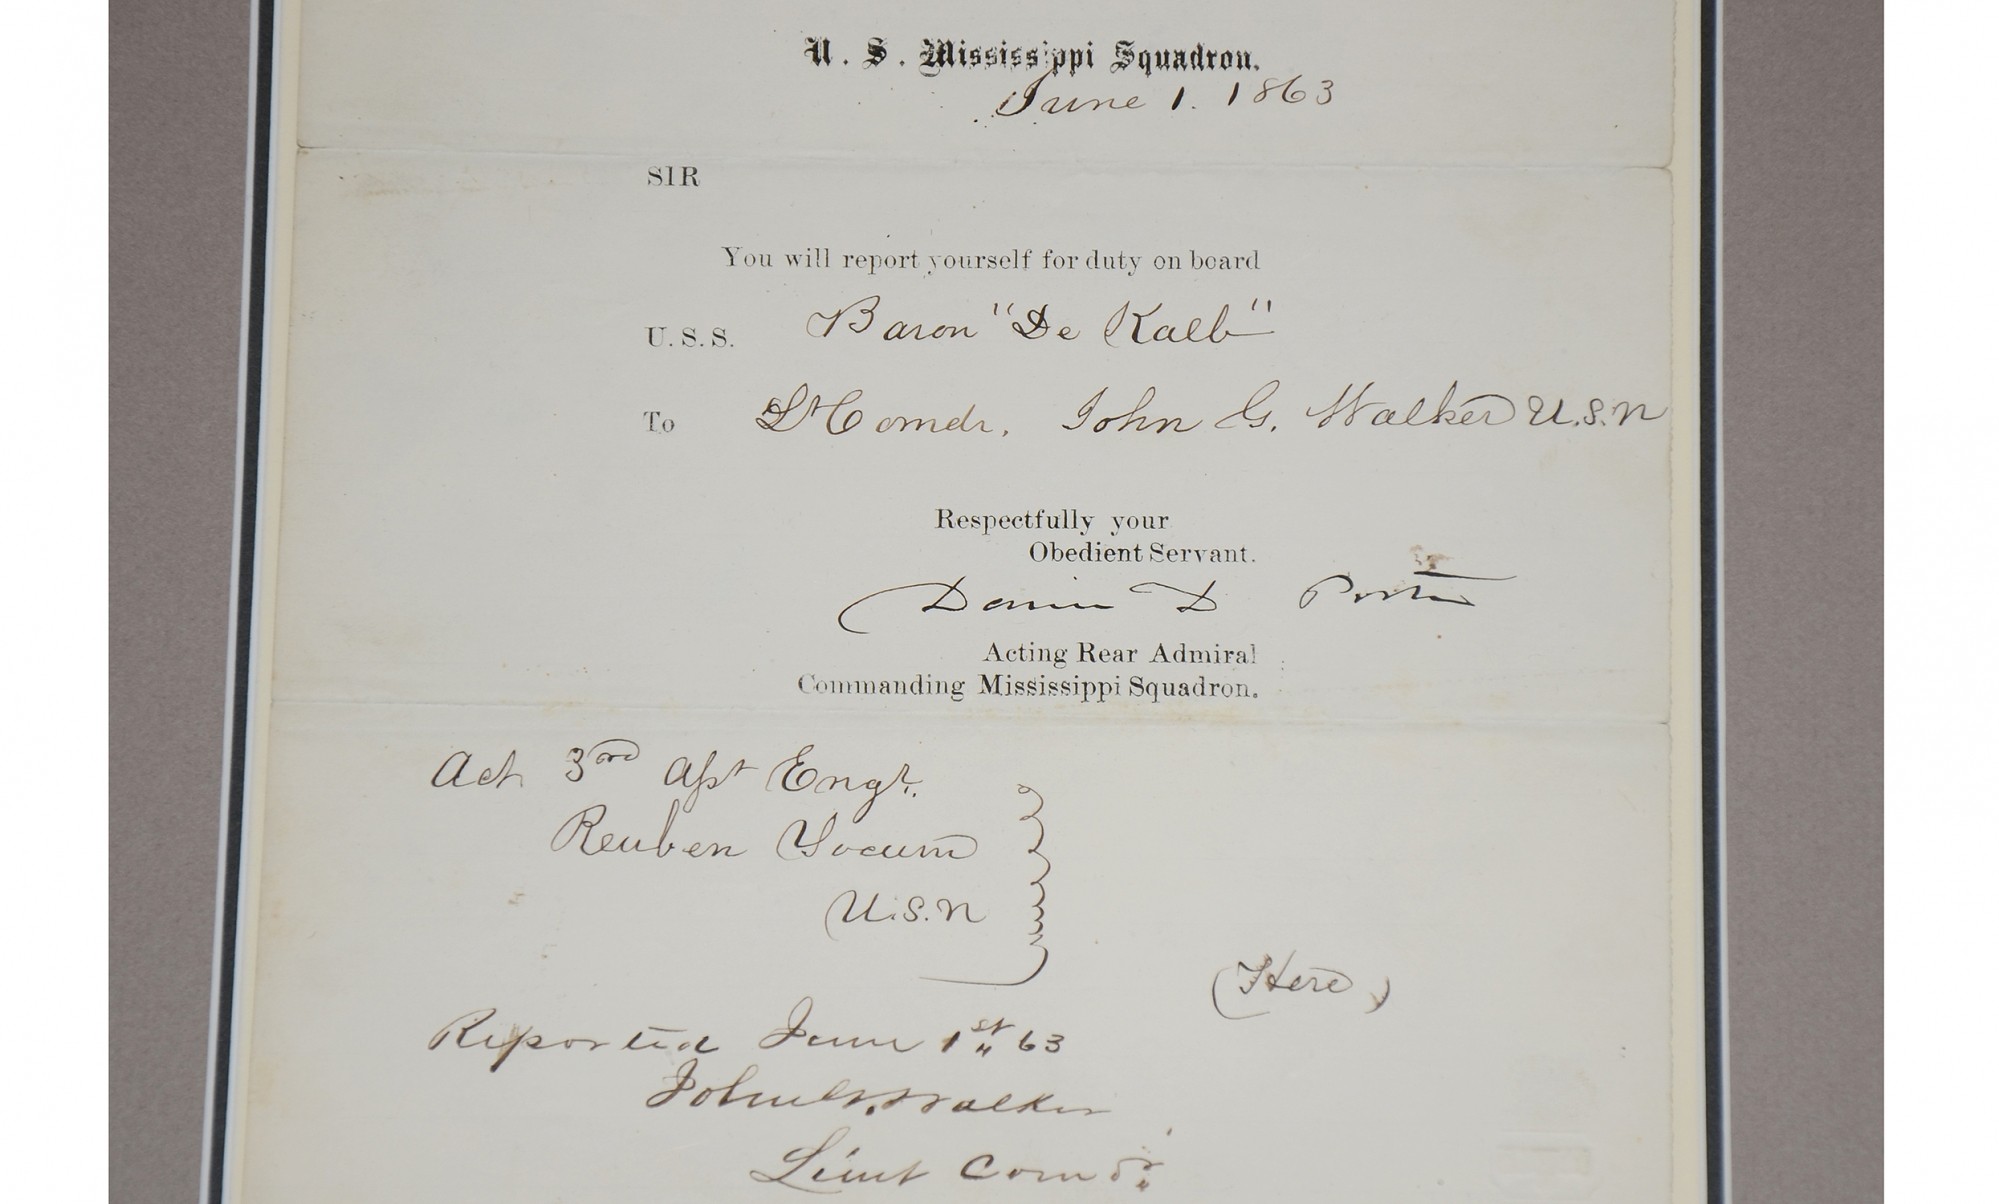 U. S. Mississippi Squadron.
June 1. 1863
SIR
You will report yourself for duty on board
U. S. S. Baron "De Kalb"
To Lt Comdr. John G. Walker U.S.N
Respectfully your
Obedient Servant.
David D Porter
Acting Rear Admiral
Commanding Mississippi Squadron.
Act 3rd Asst Engr.
Reuben Yocum
U.S.N
(Here)
Reported June 1st 63
John G. Walker
Lieut Comdr.